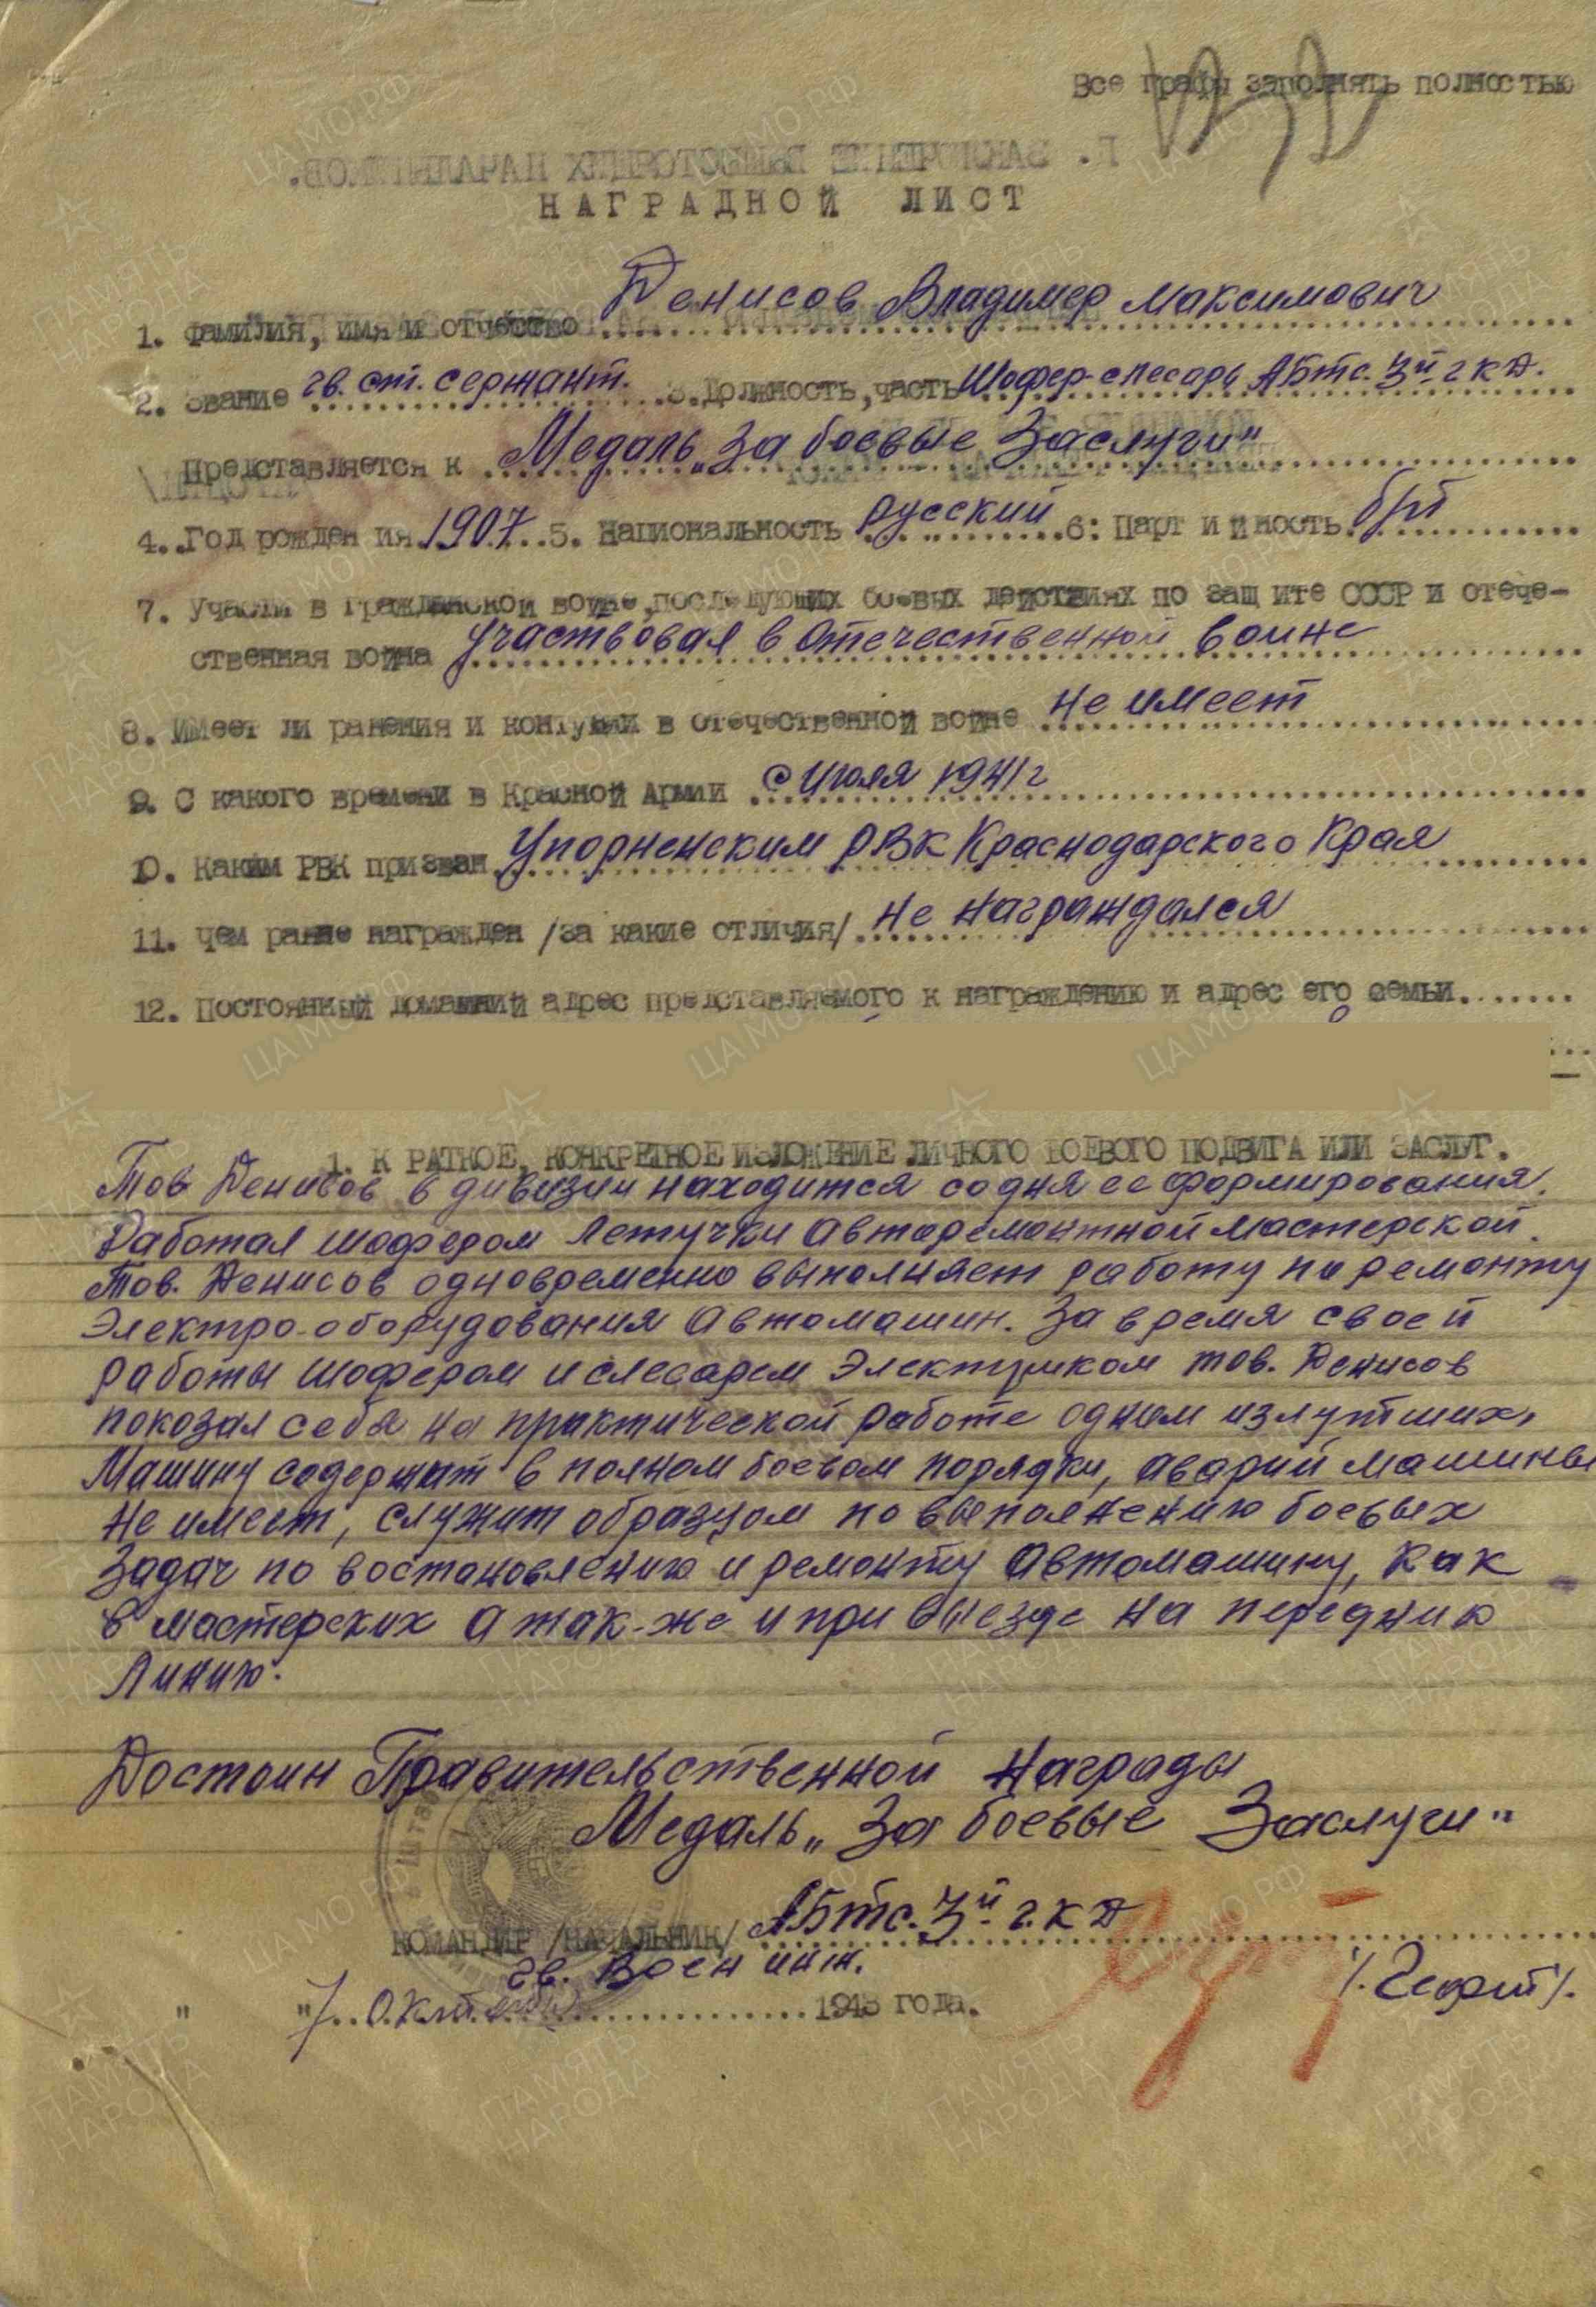 Все графы заполнять полностью
НАГРАДНОЙ ЛИСТ
1. Фамилия, имя и отчество Денисов Владимер Максимович
2. Звание гв. ст. сержант. 3. Должность, часть Шофер-слесарь АБтс. 3й г к д.
Представляется к Медаль „За боевые Заслуги"
4. Год рождения 1907 5. Национальность русский 6: Партийность б/п
7. Участи в гражданской войне, последующих боевых действиях по защите СССР и отече-
ственная война Участвовал в Отечественной воине
8. Имеет ли ранения и контузии в отечественной войне не имеет
9. С какого времени в Красной Армии с июля 1941 г
10. Каким РВК призван Упорненским РВК Краснодарского Края
11. чем ранее награжден /за какие отличия/ Не награждался
12. Постоянный домашний адрес представляемого к награждению и адрес его семьи.
1. КРАТКОЕ, КОНКРЕТНОЕ ИЗЛОЖЕНИЕ ЛИЧНОГО БОЕВОГО ПОДВИГА ИЛИ ЗАСЛУГ.
Тов Денисов в дивизии находится со дня ее формирования.
Работал шофером Летучки Авторемонтной мастерской.
Тов. Денисов одновременно выполняет работу по ремонту
Электро-оборудования Автомашин. За время своей
работы шофером и слесарем Электриком тов. Денисов
покозал себя на практической работе одним из лутших,
Машину содержит в полном боевом порядки, аварий машины
Не имеет, служит образцом по выполнению боевых
Задач по востоновлению и ремонту Автомашину, Как
в мастерских а так-же и при выезде на переднию
Линию.
Достоин Правительственной Награды
Медаль „За боевые Заслуги"
КОМАНДИР /НАЧАЛЬНИК/ АБтс. 3й г. К Д
гв. Воен инж.
/. Гефт/.
" "7 октября 1943 года.
ЦАМО.РФ
ПАМЯТЬ НАРОДА